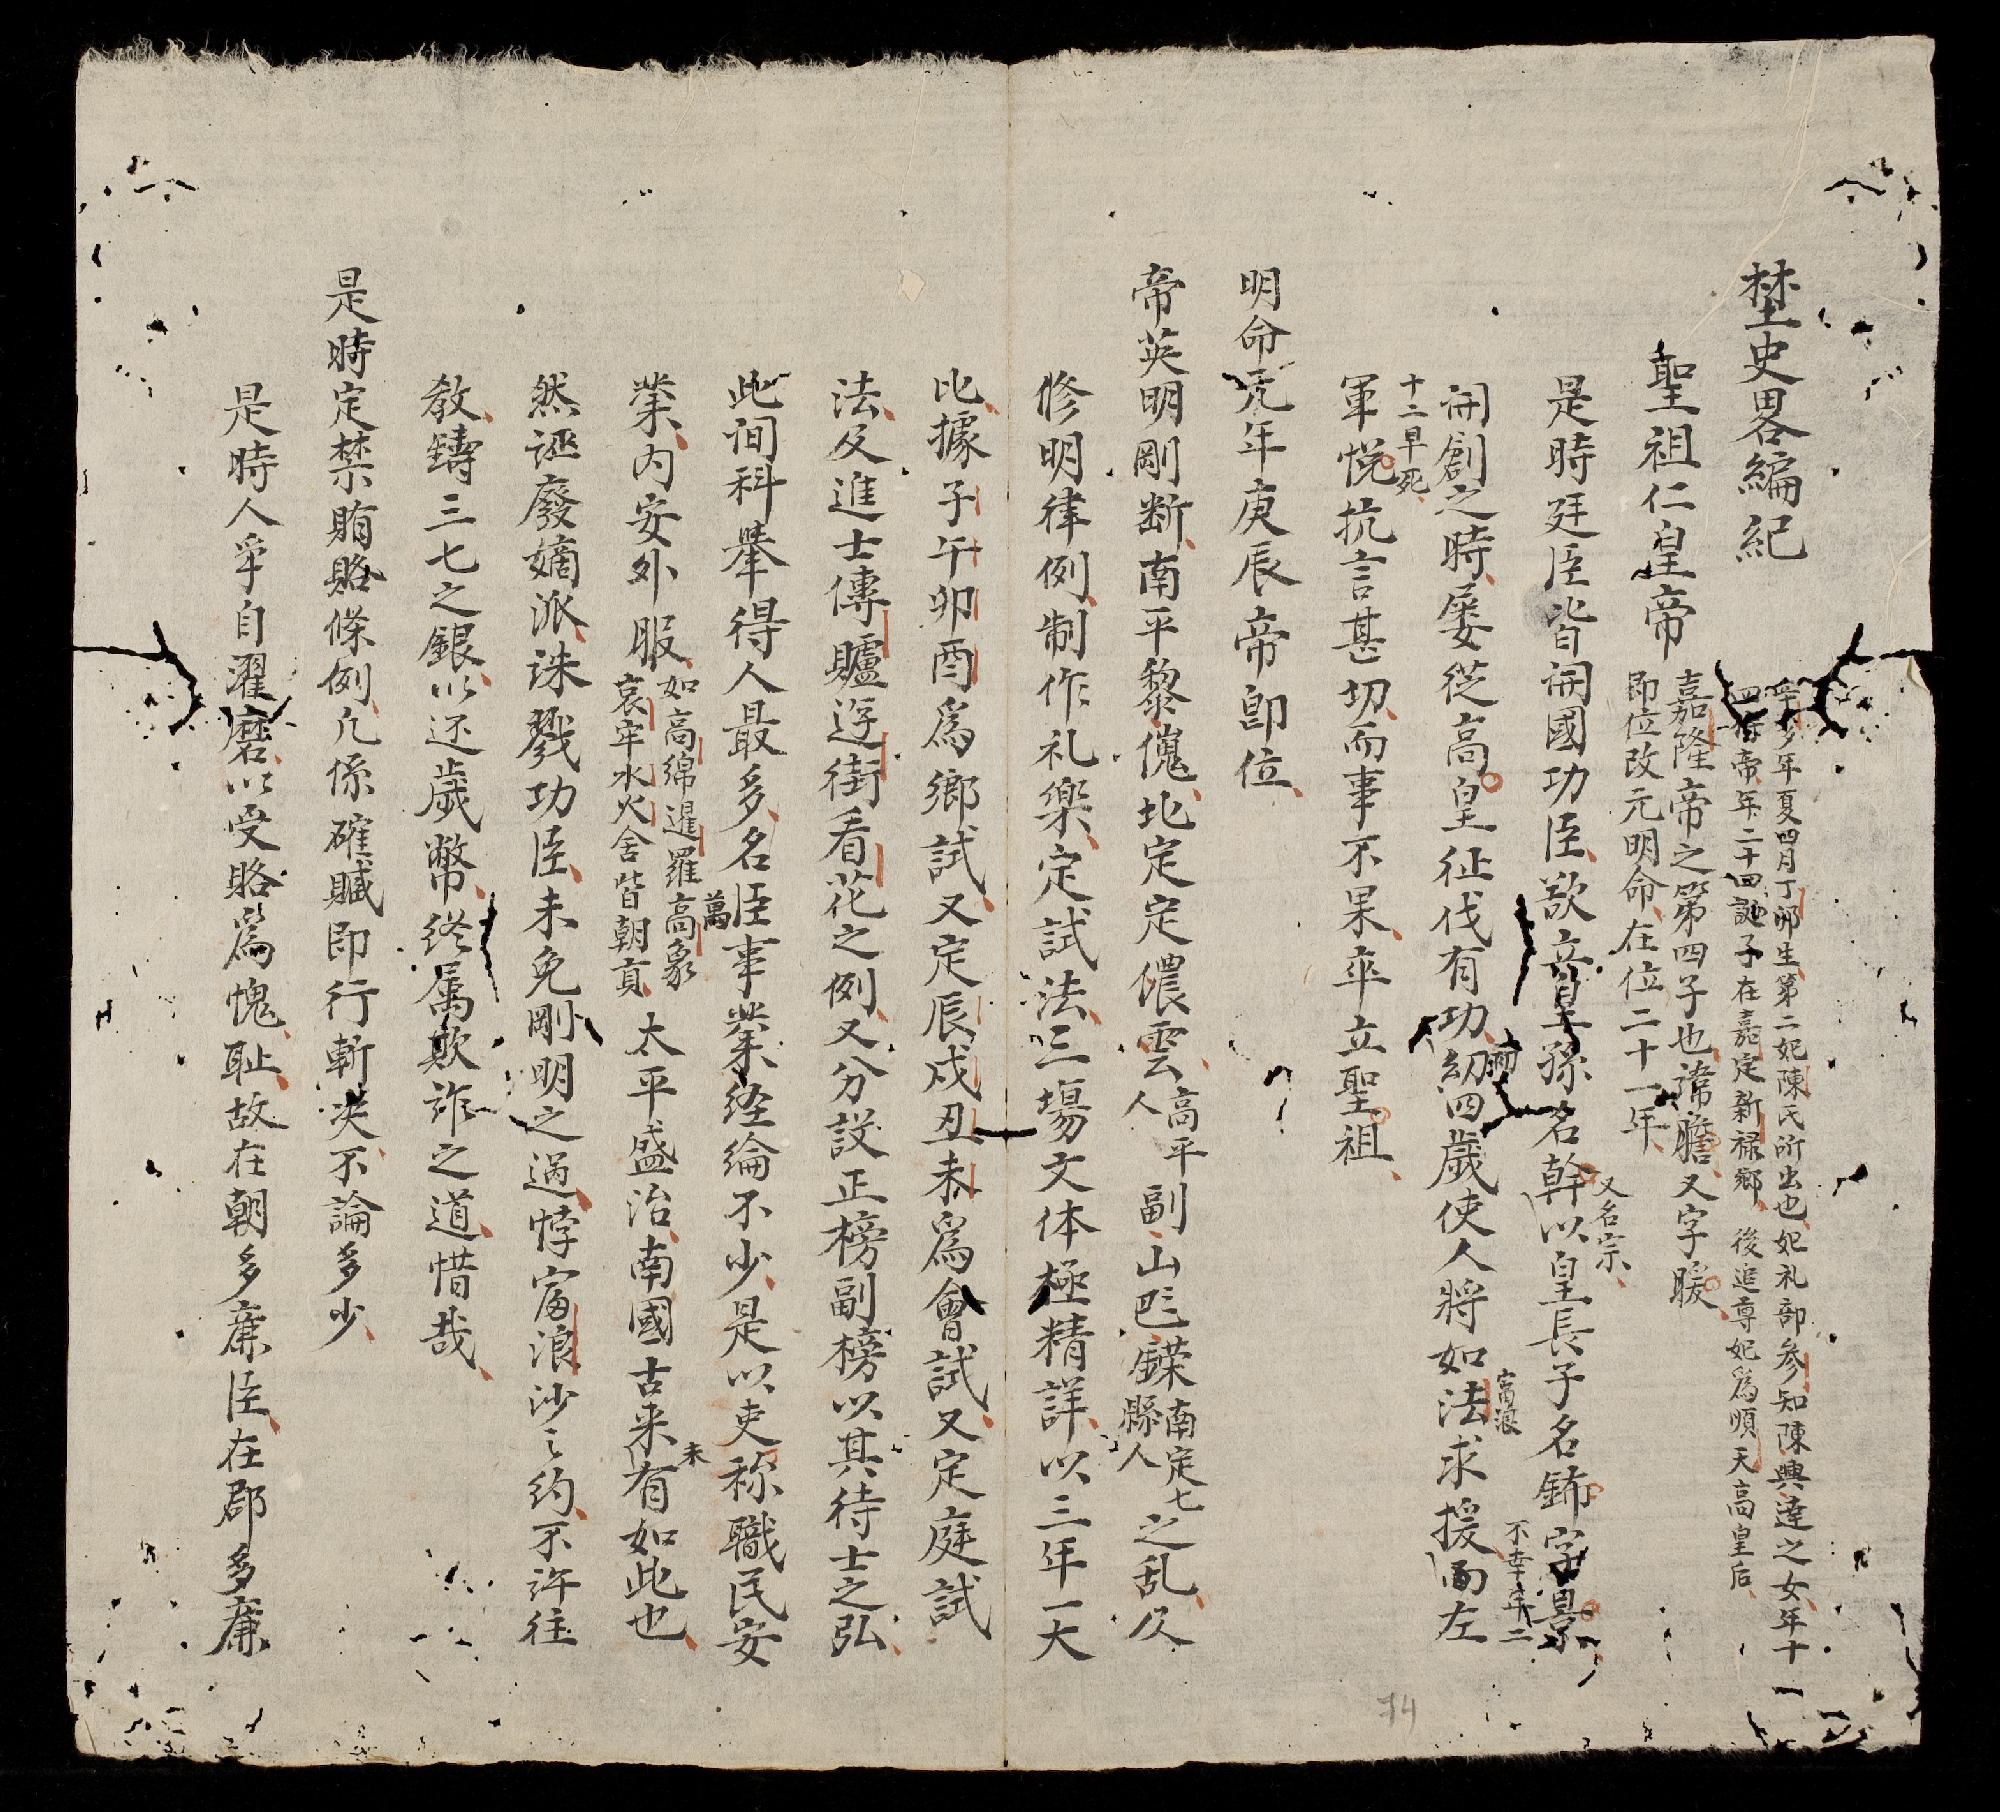 埜史畧編紀
聖祖仁皇帝
年夏四月丁卯生第二妃陳民所出也妃礼部参知陳興達之女年十一
帝年二十四誕子在嘉定新禄郷 後追尊妃為順天高皇后
嘉隆帝之第四子也諱膽又字暖
即位改元明命在位二十一年
又名宗
是時廷臣皆開國功臣欲立皇孫名幹以皇長子名鈽字景
開創之時屡従高皇征伐有功幼四歲使人將如法求援而左
富浪
不幸年二
十二早死
軍悦抗言甚切而事不果卒立聖祖
明命元年庚辰帝即位
帝英明剛断南平黎傀北定定儂雲高平人副山巴鑅南定縣人之乱又
修明律例制作礼樂定試法三場文体極精詳以三年一大
比據子午卯酉為鄉試又定辰戌丑未為會試又定庭試
法及進士傳臚遊街看花之例又分設正榜副榜以其待士之弘
此间科舉得人最多名臣事業経綸不少是以吏称職民安
業内安外服如高綿暹羅萬象哀牢水火舍皆朝貢太平盛治南國古来未有如此也
然誣廢嫡派誅戮功臣未免剛明之過悖富浪沙之約不許往
教鑄三七之銀以还歲幣終属欺詐之道惜哉
是時定禁賄賂條例凢係確贓即行斬决不論多少
是時人争自濯磨以受賂為愧耻故在朝多廉臣在郡多廉
74